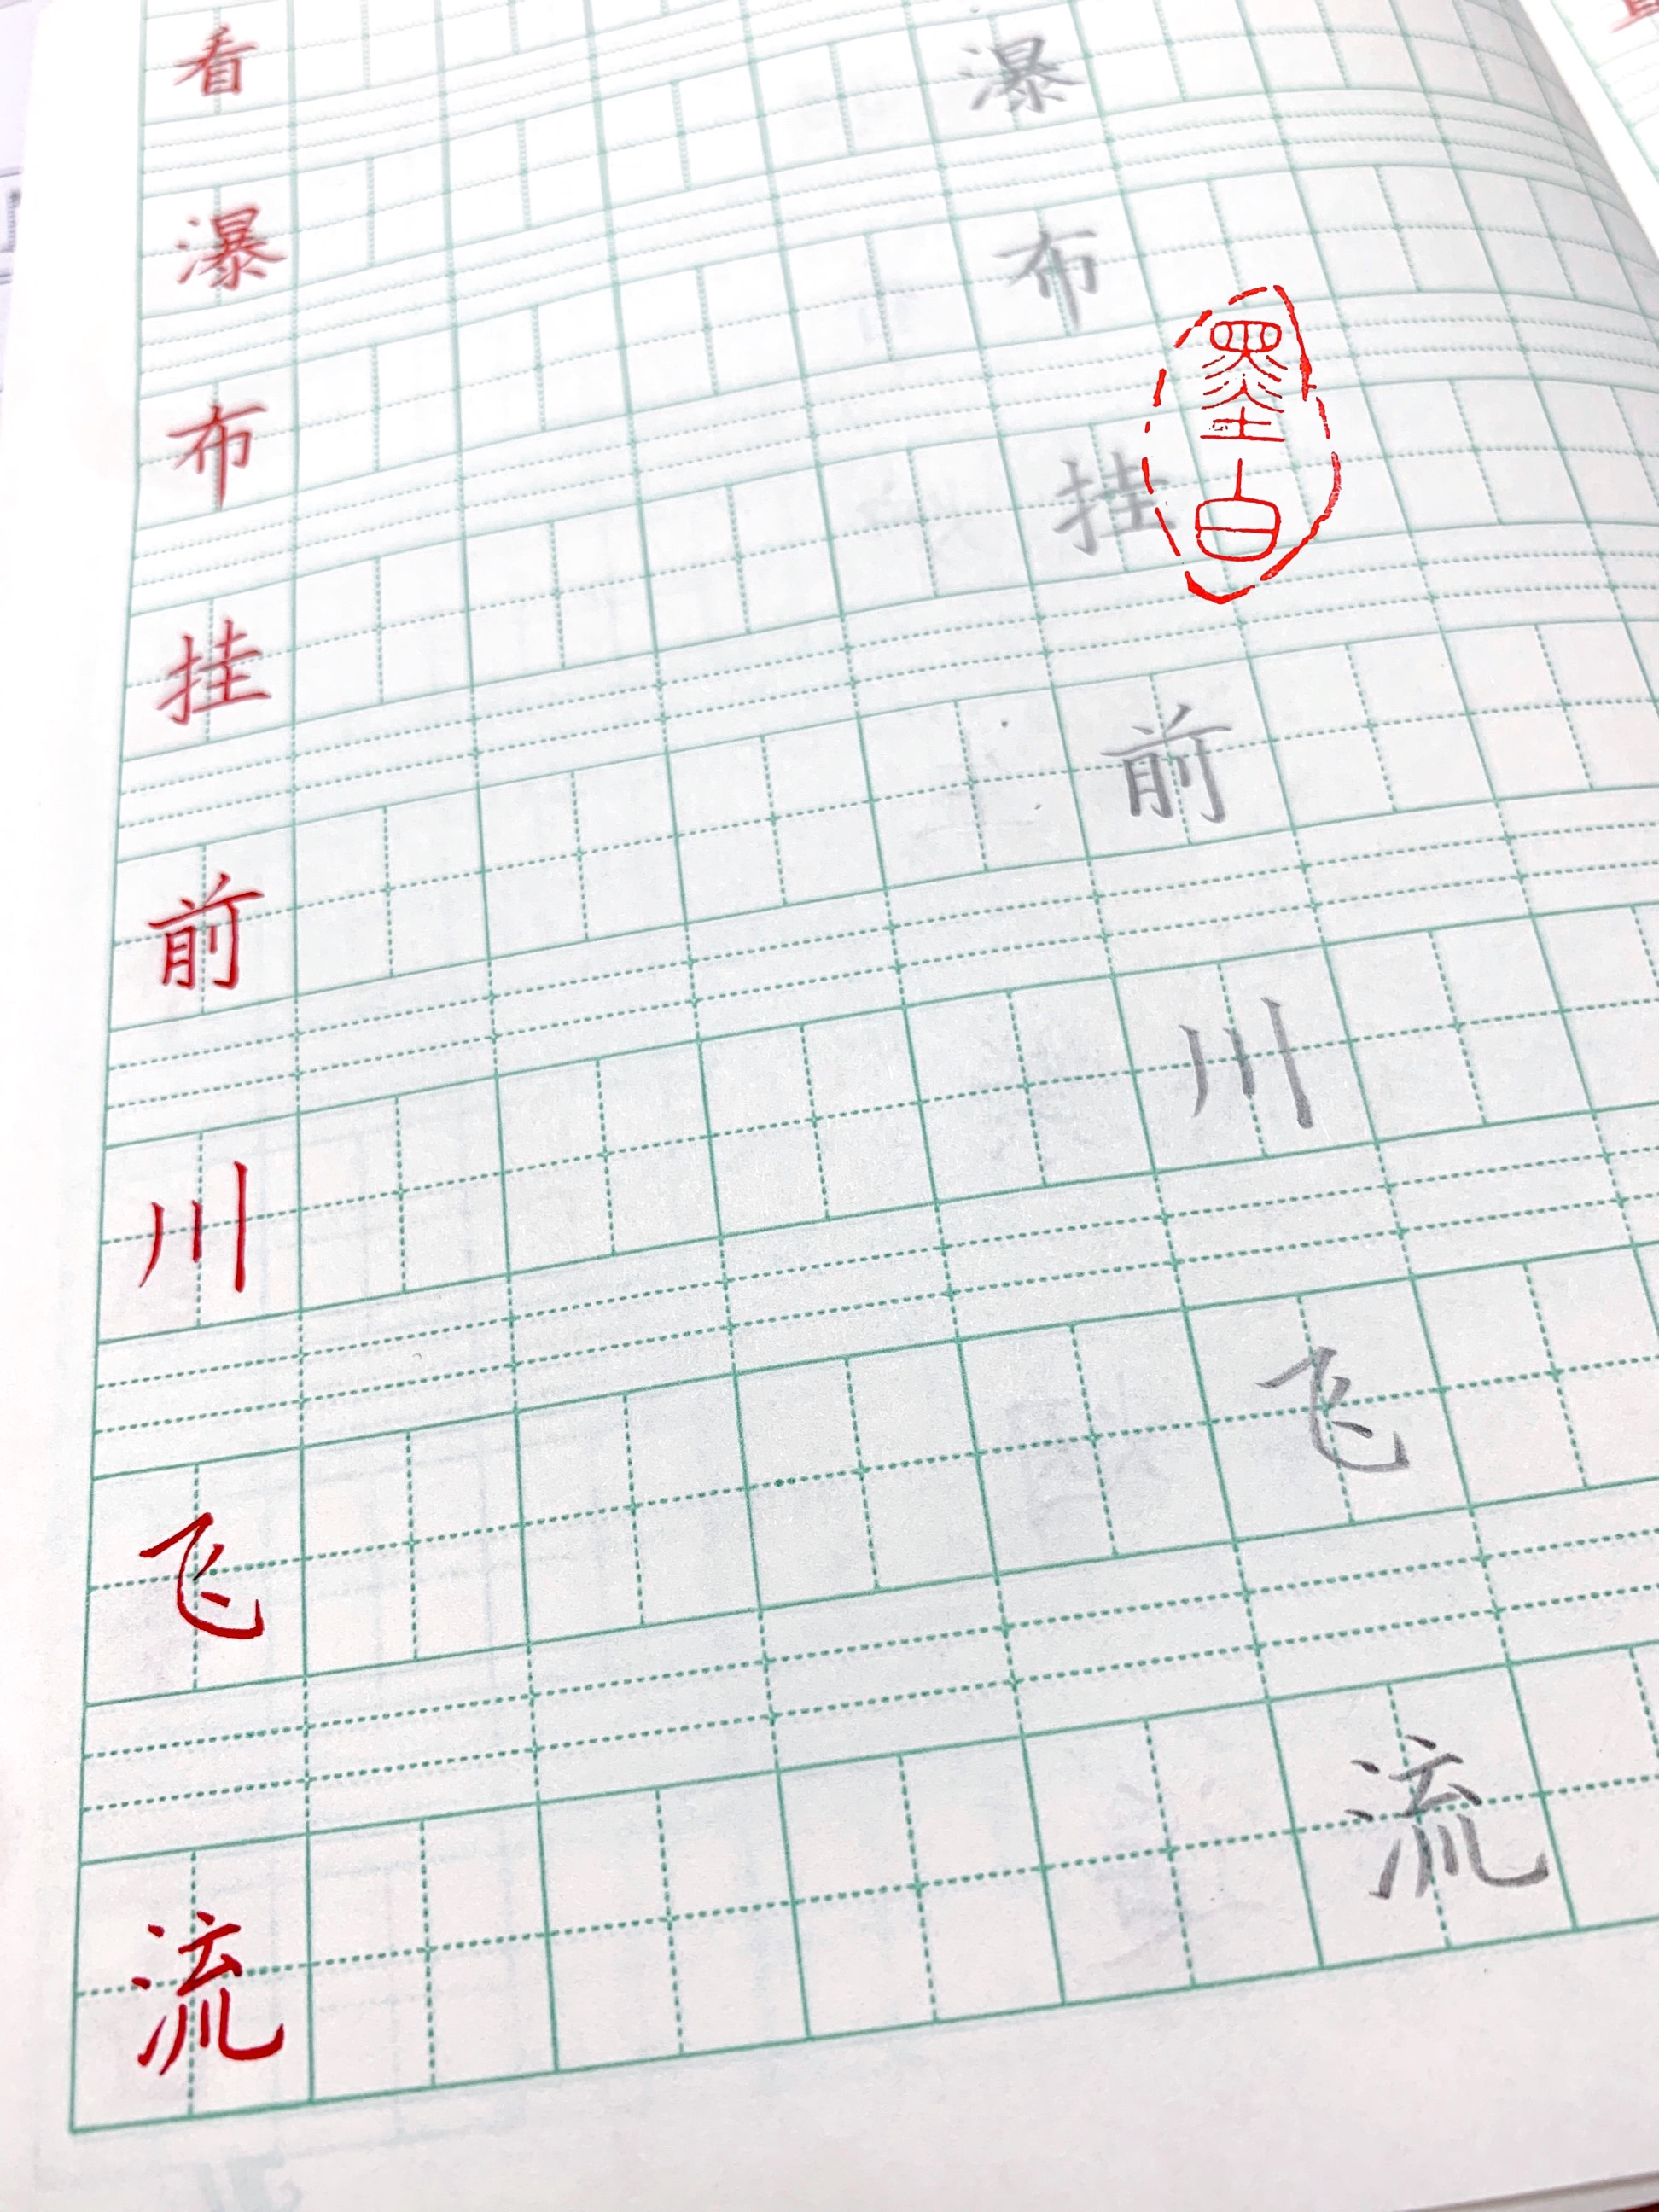 看
瀑 瀑
布 布
挂 挂
前 前
川 川
飞 飞
流 流
墨白